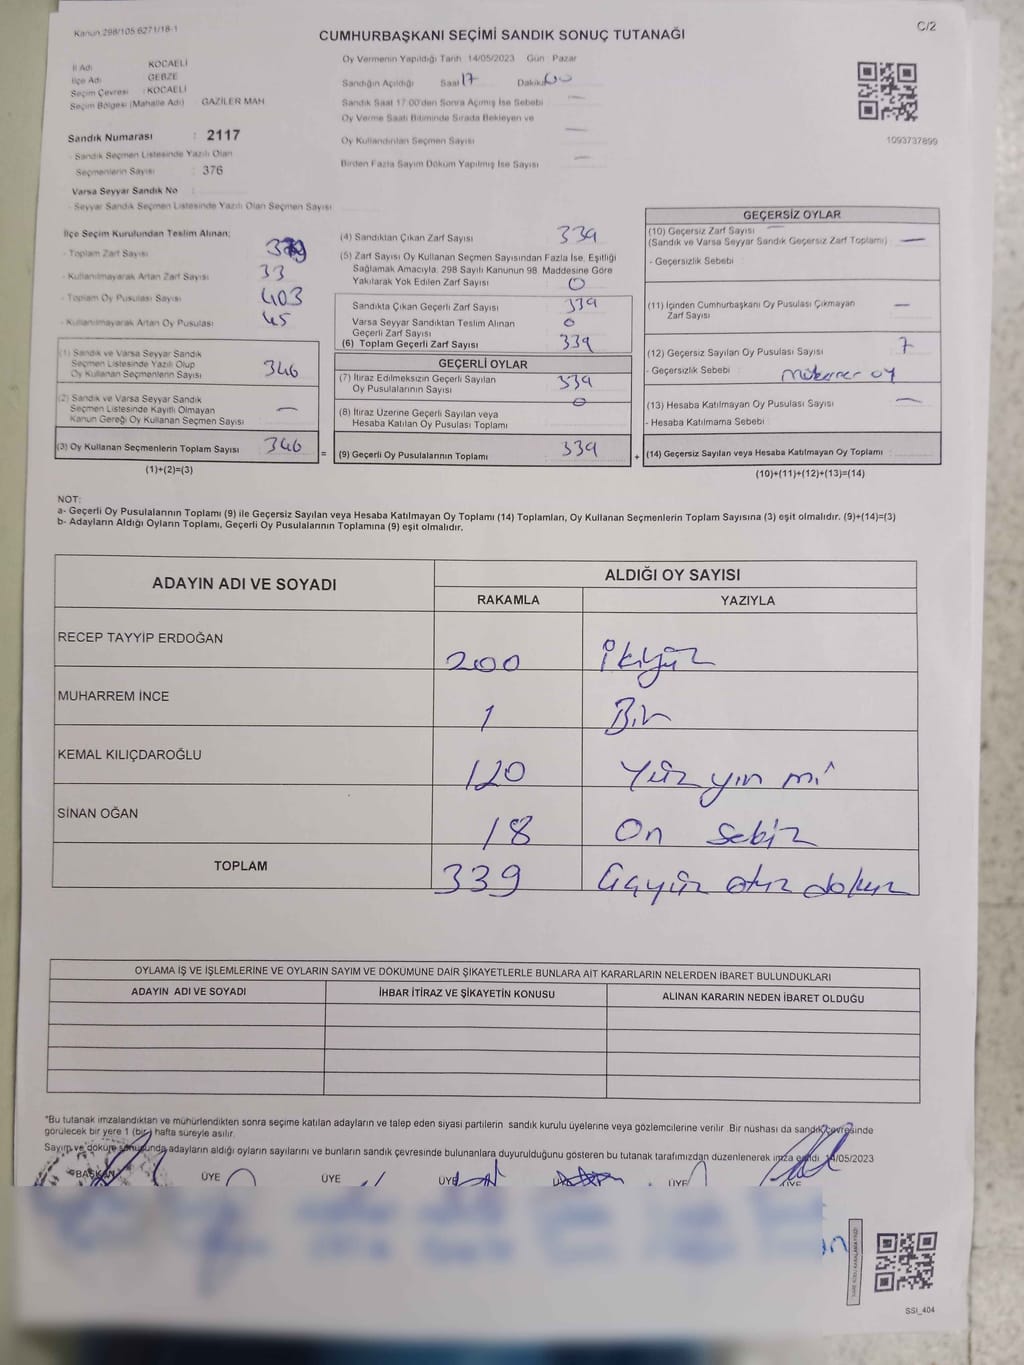 Kanun 298/105 6271/18-1
C/2
CUMHURBAŞKANI SEÇİMİ SANDIK SONUÇ TUTANAĞI
İl Adı KOCAELİ
İlçe Adı GEBZE
Seçim Çevresi : KOCAELİ
Seçim Bölgesi (Mahalle Adı) GAZİLER MAH
Sandık Numarası : 2117
- Sandık Seçmen Listesinde Yazılı Olan
Seçmenlerin Sayısı : 376
Varsa Seyyar Sandık No
- Seyyar Sandık Seçmen Listesinde Yazılı Olan Seçmen Sayısı
Oy Vermenin Yapıldığı Tarih 14/05/2023 Gün Pazar
Sandığın Açıldığı Saat 17 Dakika 00
Sandık Saat 17:00'den Sonra Açımış İse Sebebi —
Oy Verme Saati Bitiminde Sırada Bekleyen ve
Oy Kullandırılan Seçmen Sayısı —
Birden Fazla Sayım Döküm Yapılmış İse Sayısı —
1093737899
İlçe Seçim Kurulundan Teslim Alınan;
- Toplam Zarf Sayısı
- Kullanılmayarak Artan Zarf Sayısı 33
- Toplam Oy Pusulası Sayısı 403
- Kullanılmayarak Artan Oy Pusulası 45
(1) Sandık ve Varsa Seyyar Sandık
Seçmen Listesinde Yazılı Olup
Oy Kullanan Seçmenlerin Sayısı 346
(2) Sandık ve Varsa Seyyar Sandık
Seçmen Listesinde Kayıtlı Olmayan
Kanun Gereği Oy Kullanan Seçmen Sayısı —
(3) Oy Kullanan Seçmenlerin Toplam Sayısı 346
(1)+(2)=(3)
=
(4) Sandıktan Çıkan Zarf Sayısı 339
(5) Zarf Sayısı Oy Kullanan Seçmen Sayısından Fazla İse, Eşitliği
Sağlamak Amacıyla, 298 Sayılı Kanunun 98. Maddesine Göre
Yakılarak Yok Edilen Zarf Sayısı 0
Sandıkta Çıkan Geçerli Zarf Sayısı 339
Varsa Seyyar Sandıktan Teslim Alınan
Geçerli Zarf Sayısı 0
(6) Toplam Geçerli Zarf Sayısı 339
GEÇERLİ OYLAR
(7) İtiraz Edilmeksizin Geçerli Sayılan
Oy Pusulalarının Sayısı 339
(8) İtiraz Üzerine Geçerli Sayılan veya
Hesaba Katılan Oy Pusulası Toplamı 0
(9) Geçerli Oy Pusulalarının Toplamı 339
+
GEÇERSİZ OYLAR
(10) Geçersiz Zarf Sayısı —
(Sandık ve Varsa Seyyar Sandık Geçersiz Zarf Toplamı) —
- Geçersizlik Sebebi
(11) İçinden Cumhurbaşkanı Oy Pusulası Çıkmayan
Zarf Sayısı —
(12) Geçersiz Sayılan Oy Pusulası Sayısı 7
- Geçersizlik Sebebi oy
(13) Hesaba Katılmayan Oy Pusulası Sayısı —
- Hesaba Katılmama Sebebi
(14) Geçersiz Sayılan veya Hesaba Katılmayan Oy Toplamı :
(10)+(11)+(12)+(13)=(14)
NOT:
a- Geçerli Oy Pusulalarının Toplamı (9) ile Geçersiz Sayılan veya Hesaba Katılmayan Oy Toplamı (14) Toplamları, Oy Kullanan Seçmenlerin Toplam Sayısına (3) eşit olmalıdır. (9)+(14)=(3)
b- Adayların Aldığı Oyların Toplamı, Geçerli Oy Pusulalarının Toplamına (9) eşit olmalıdır.
ADAYIN ADI VE SOYADI
ALDIĞI OY SAYISI
RAKAMLA YAZIYLA
RECEP TAYYİP ERDOĞAN 200 ikiyüz
MUHARREM İNCE 1 Bir
KEMAL KILIÇDAROĞLU 120 Yüz yirmi
SİNAN OĞAN 18 On sekiz
TOPLAM 339 üçyüz otuz dokuz
OYLAMA İŞ VE İŞLEMLERİNE VE OYLARIN SAYIM VE DÖKÜMÜNE DAİR ŞİKAYETLERLE BUNLARA AİT KARARLARIN NELERDEN İBARET BULUNDUKLARI
ADAYIN ADI VE SOYADI İHBAR İTİRAZ VE ŞİKAYETİN KONUSU ALINAN KARARIN NEDEN İBARET OLDUĞU
*Bu tutanak imzalandıktan ve mühürlendikten sonra seçime katılan adayların ve talep eden siyasi partilerin sandık kurulu üyelerine veya gözlemcilerine verilir. Bir nüshası da sandık çevresinde
görülecek bir yere 1 (bir) hafta süreyle asılır.
Sayım ve döküm sonucunda adayların aldığı oyların sayılarını ve bunların sandık çevresinde bulunanlara duyurulduğunu gösteren bu tutanak tarafımızdan düzenlenerek imza edildi. 14/05/2023
BAŞKAN ÜYE ÜYE ÜYE ÜYE ÜYE
SSİ_404